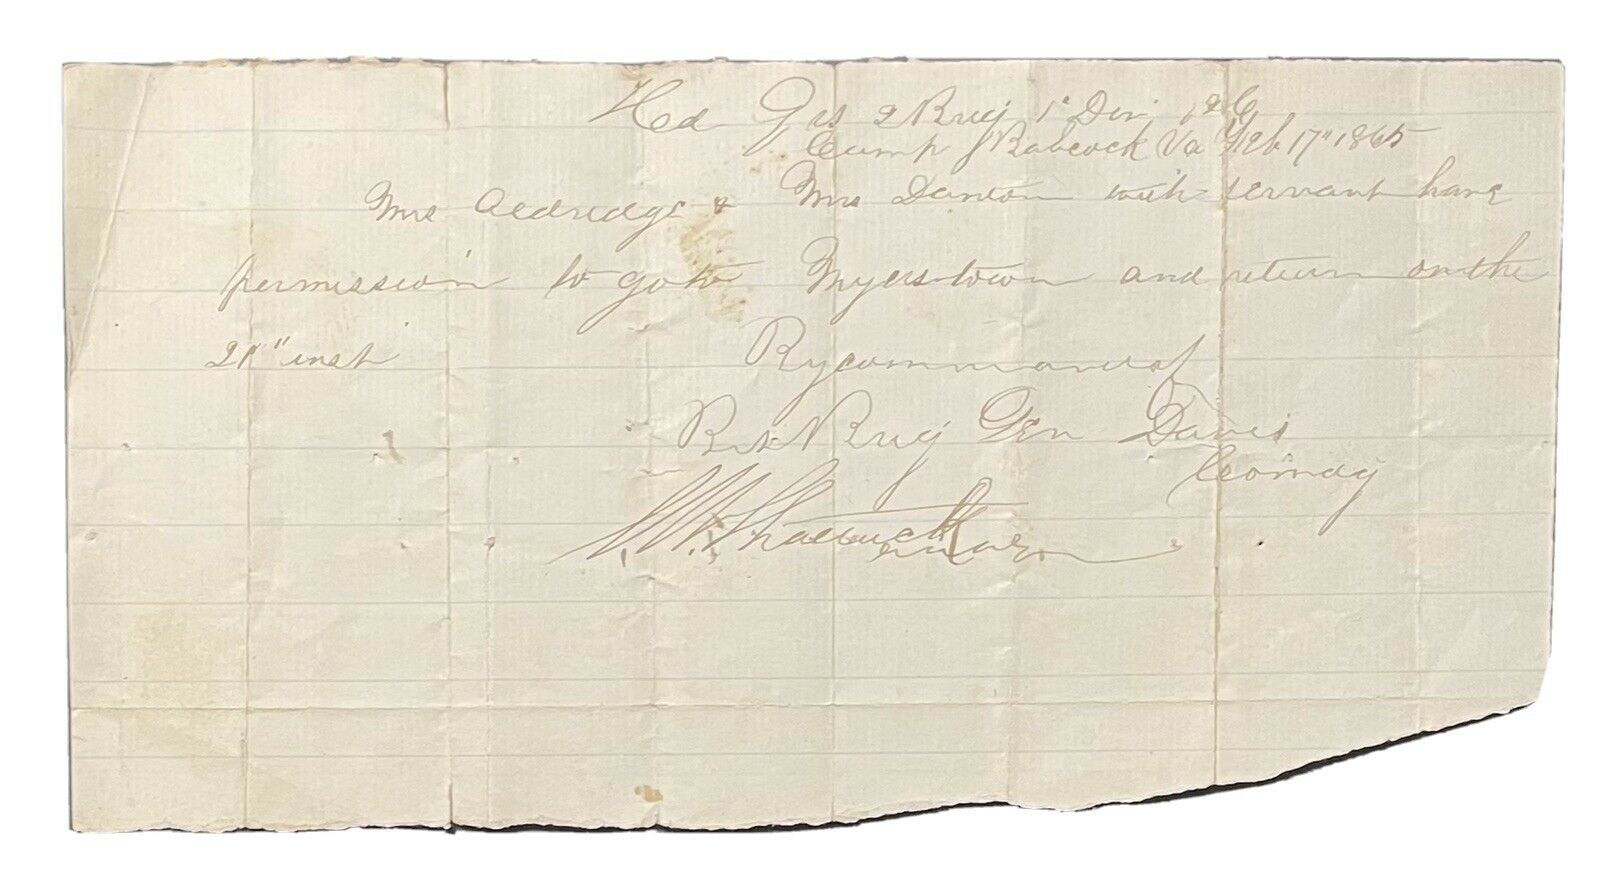 Hd Qrs 2 Brig 1" Div
Camp Babcock Va Feb 17" 1865
Mrs Aldridge & Mrs Danton with servant have
permission to go to Myerstown and return on the
21" inst
By command of
Bvt Brig Gen Davis
Comdg
Shattuck